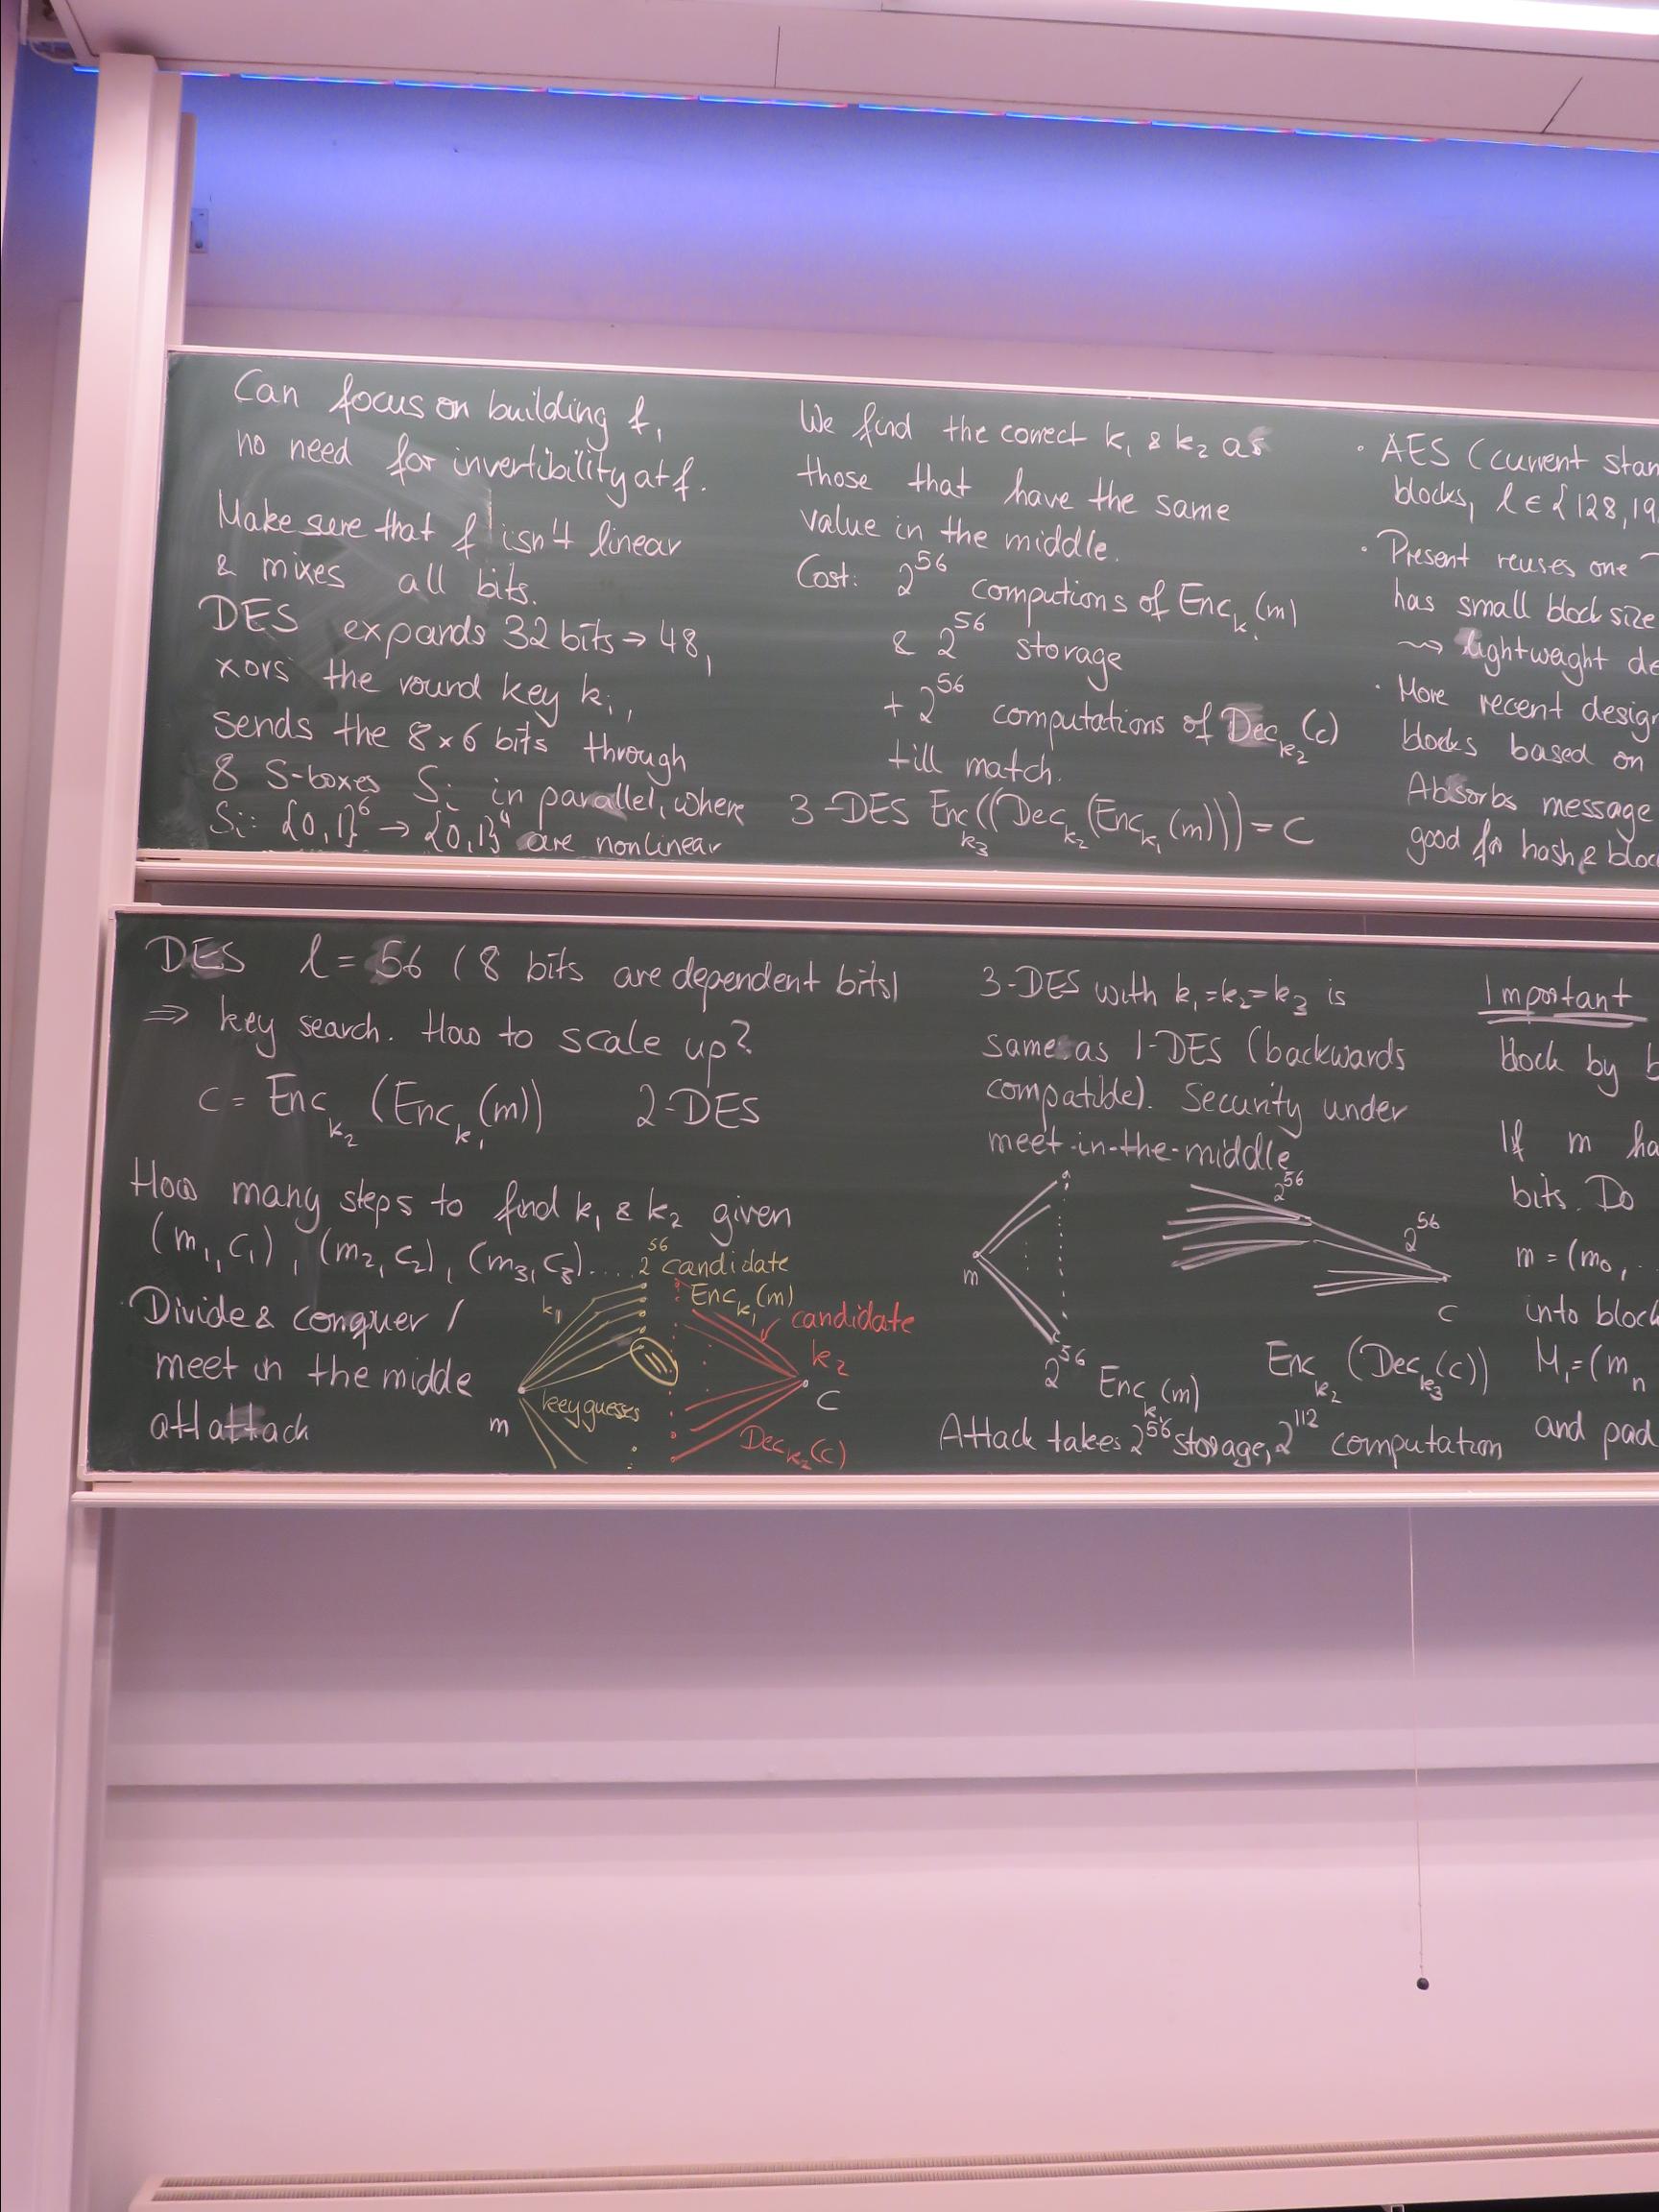 Can focus on building f,
no need for invertibility at f.
Make sure that f isn't linear
& mixes all bits.
DES expands 32 bits → 48,
xors the round key kᵢ,
sends the 8×6 bits through
8 S-boxes Sᵢ in parallel, where
Sᵢ: {0,1}⁶ → {0,1}⁴ are nonlinear
We find the correct k₁ & k₂ as
those that have the same
value in the middle.
Cost: 2⁵⁶ computions of Enc_k₁(m)
& 2⁵⁶ storage
+ 2⁵⁶ computations of Dec_k₂(c)
till match.
3-DES Enc_k₃((Dec_k₂(Enc_k₁(m))) = C
· AES (current stan
blocks, l ∈ {128, 19
· Present reuses one
has small block size
⇝ lightweight de
· More recent design
blocks based on
Absorbs message
good for hash & bloc
DES l = 56 (8 bits are dependent bits)
⇒ key search. How to scale up?
c = Enc_k₂(Enc_k₁(m)) 2-DES
How many steps to find k₁ & k₂ given
(m₁, c₁), (m₂, c₂), (m₃, c₃)....
Divide & conquer /
meet in the midde
att attack
2⁵⁶ candidate
Enc_k₁(m)
k₁
key guesses
m
candidate
k₂
C
Dec_k₂(c)
3-DES with k₁=k₂=k₃ is
same as 1-DES (backwards
compatible). Security under
meet-in-the-middle
2⁵⁶
2⁵⁶
m
C
2⁵⁶ Enc_k₁(m)
Enc_k₂(Dec_k₃(c))
Attack takes 2⁵⁶ storage, 2¹¹² computation
Important
block by b
If m ha
bits. Do
m = (m₀, ..
into block
M₁ = (m_n
and pad